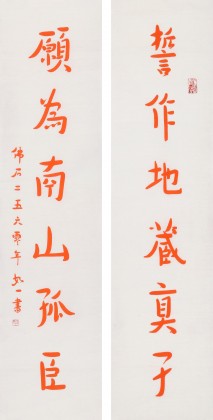 誓作地藏真子
願為南山孤臣
佛 二五六零年 一書